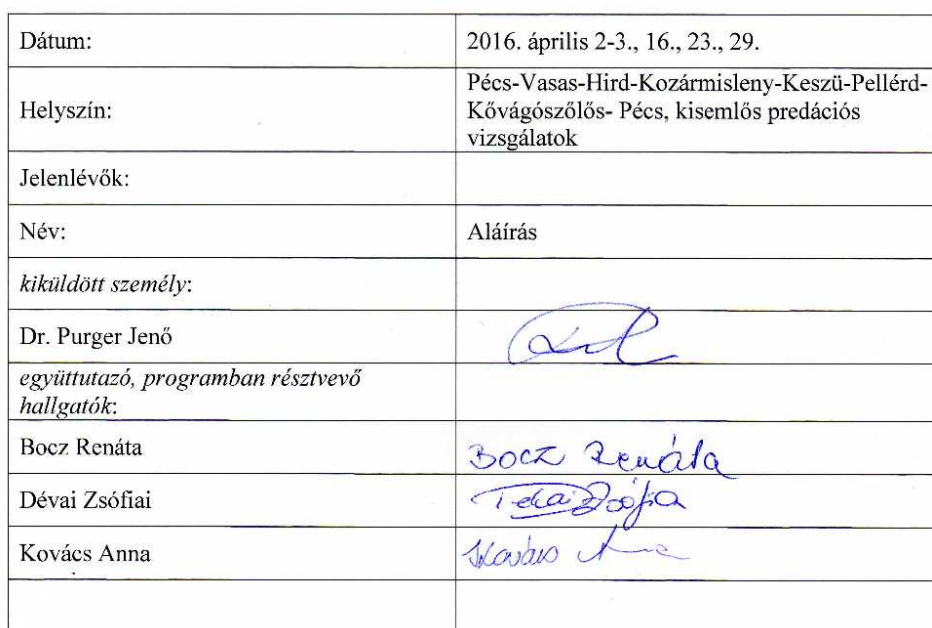 Dátum:
2016. április 2-3., 16., 23., 29.
Helyszín:
Pécs-Vasas-Hird-Kozármisleny-Keszü-Pellérd-
Kővágószőlős- Pécs, kisemlős predációs
vizsgálatok
Jelenlévők:
Név:
Aláírás
kiküldött személy:
Dr. Purger Jenő
együttutazó, programban résztvevő
hallgatók:
Bocz Renáta
Bocz Renáta
Dévai Zsófiai
Zsófia
Kovács Anna
Kovács Anna